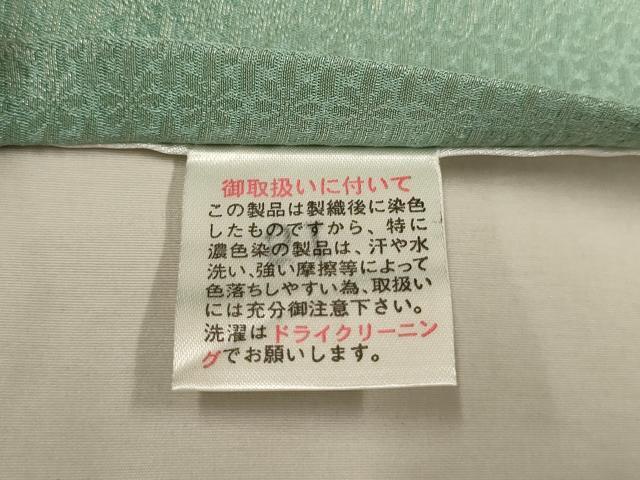 御取扱いに付いて
この製品は製織後に染色
したものですから、特に
濃色染の製品は、汗や水
洗い、強い摩擦等によって
色落ちしやすい為、取扱い
には充分御注意下さい。
洗濯はドライクリーニン
グでお願いします。